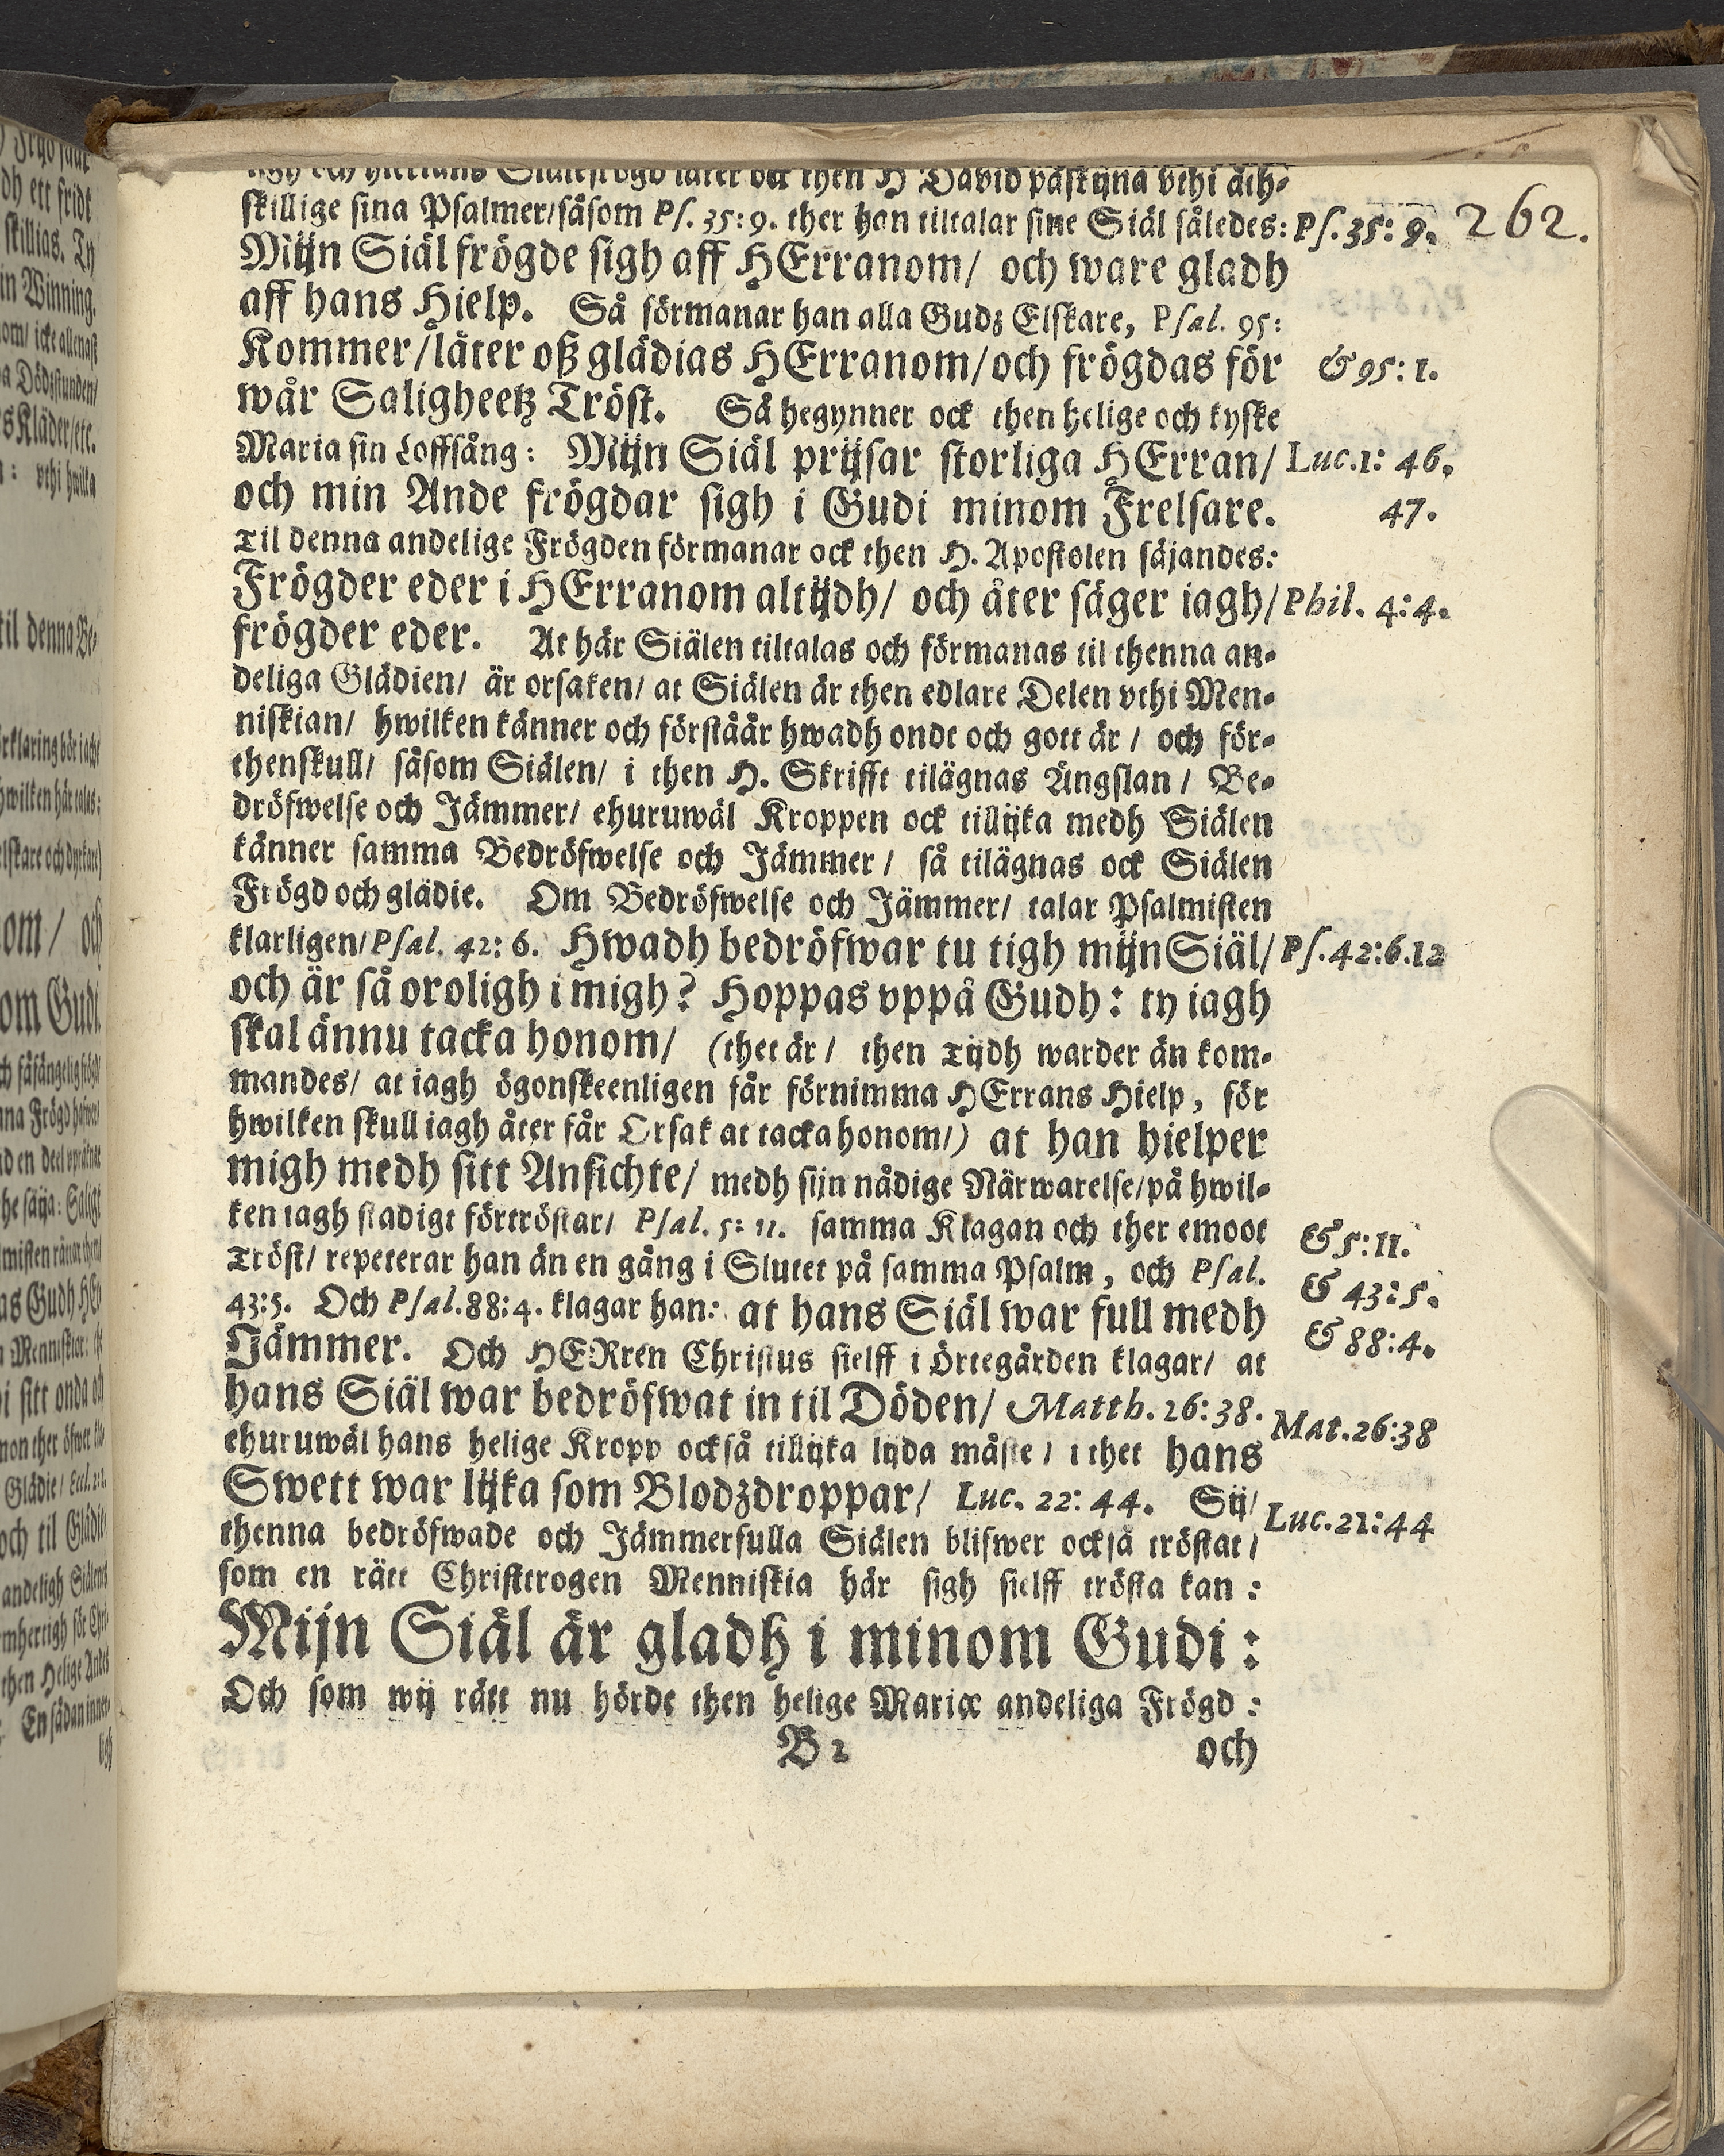 ligh och hiertans Siälefrögd låter ock then H David påskijna vthi åth-
skillige sina Psalmer/såsom Ps. 35: 9. ther han tiltalar sine Siäl således: Ps. 35: 9. 262.
Mijn Siäl frögde sigh aff HErranom/ och ware gladh
aff hans Hielp. Så förmanar han alla Gudz Elskare, Psal. 95:
Kommer/låter oß glädias HErranom/och frögdas för & 95: 1.
wår Saligheetz Tröst. Så begynner ock then helige och kyske
Maria sin Loffsång: Mijn Siäl prijsar storliga HErran/ Luc.1: 46.
och min Ande frögdar sigh i Gudi minom Frelsare. 47.
Til denna andelige Frögden förmanar ock then H. Apostolen säjandes:
Frögder eder i HErranom altijdh/ och åter säger iagh/ Phil. 4: 4.
frögder eder. At här Siälen tiltalas och förmanas til thenna an-
deliga Glädien/ är orsaken/ at Siälen är then edlare Delen vthi Men-
niskian/ hwilken känner och förståår hwadh ondt och gott är / och för-
thenskull/ såsom Siälen/ i then H. Skrifft tilägnas Ängslan / Be-
dröfwelse och Jämmer/ ehuruwäl Kroppen ock tillijka medh Siälen
känner samma Bedröfwelse och Jämmer / så tilägnas ock Siälen
Frögd och glädie. Om Bedröfwelse och Jämmer/ talar Psalmisten
klarligen/Psal. 42: 6. Hwadh bedröfwar tu tigh mijn Siäl/ Ps. 42:6.12
och är så oroligh i migh? Hoppas vppå Gudh: ty iagh
skal ännu tacka honom/ (thet är / then Tijdh warder än kom-
mandes/ at iagh ögonskeenligen får förnimma HErrans Hielp, för
hwilken skull iagh åter får Orsak at tacka honom/) at han hielper
migh medh sitt Ansichte/ medh sijn nådige Närwarelse/på hwil-
ken iagh stadigt förtröstar/ Psal. 5: 11. samma Klagan och ther emoot & 5: 11.
Tröst/ repeterar han än en gång i Slutet på samma Psalm, och Psal. & 43: 5.
43:5. Och Psal. 88: 4. klagar han: at hans Siäl war full medh & 88: 4.
Jämmer. Och HERren Christus sielff i Örtegården klagar/ at
hans Siäl war bedröfwat in til Döden/ Matth. 26: 38. Mat.26:38
ehuruwäl hans helige Kropp också tillijka lijda måste / i thet hans
Swett war lijka som Blodzdroppar/ Luc. 22: 44. Sij/ Luc.22:44
thenna bedröfwade och Jämmerfulla Siälen blifwer också tröstat /
som en rätt Christtrogen Menniskia här sigh sielff trösta kan :
Mijn Siäl är gladh i minom Gudi :
Och som wij rätt nu hörde then helige Mariæ andeliga Frögd :
B 2 och